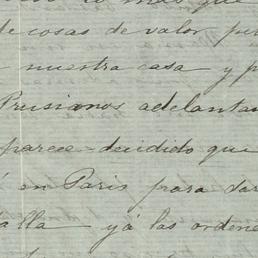 lo mas que
de cosas de valor pu
nuestra casa y p
Prusianos adelantan
parece decidido que
en Paris para dar
alla yá las ordene